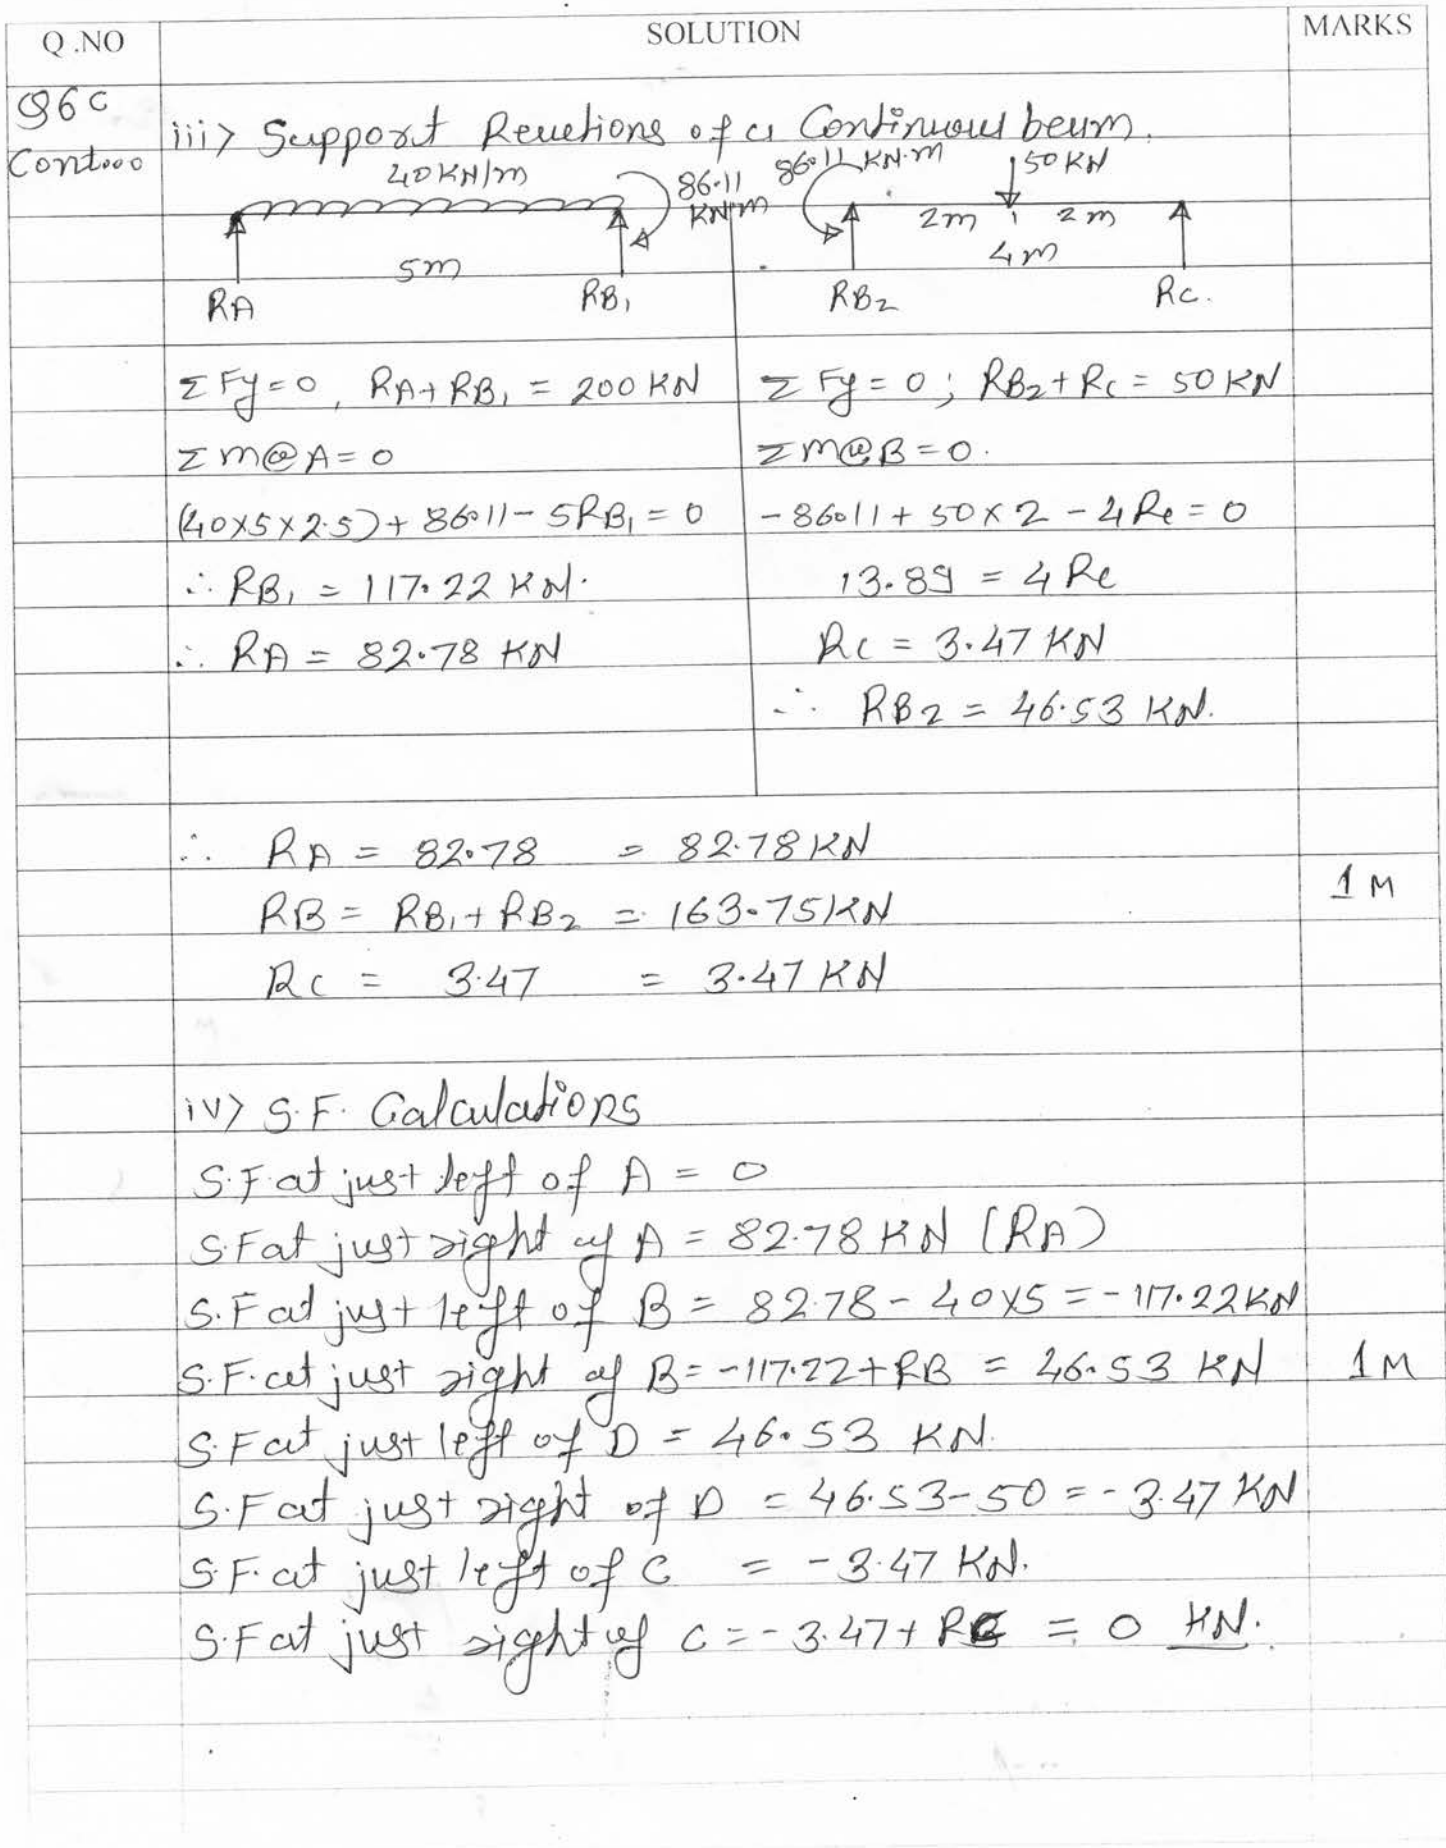 Q .NO SOLUTION MARKS
Q6C
Cont...
iii> Support Reactions of a Continuous beam.
40KN/m 86.11 KN.m 86.11 KN.m 50 KN
5m 2m 2m
4m
RA RB1 RB2 RC.
ΣFy=0, RA+RB1 = 200 KN
Σm@A=0
(40x5x2.5)+86.11-5RB1=0
∴ RB1 = 117.22 KN.
∴ RA = 82.78 KN
ΣFy=0; RB2+RC = 50 KN
Σm@B=0.
-86.11+50x2-4Rc=0
13.89 = 4Rc
RC = 3.47 KN
∴ RB2 = 46.53 KN.
∴ RA = 82.78 = 82.78 KN
RB = RB1+RB2 = 163.75 KN
RC = 3.47 = 3.47 KN
1M
iv> S.F. Calculations
S.F at just left of A = 0
S.F at just right of A = 82.78 KN (RA)
S.F at just left of B = 82.78-40x5=-117.22 KN
S.F. at just right of B=-117.22+RB = 46.53 KN 1M
S.F at just left of D = 46.53 KN.
S.F at just right of D = 46.53-50=-3.47 KN
S.F. at just left of C = -3.47 KN.
S.F at just right of C=-3.47+RC = 0 KN.